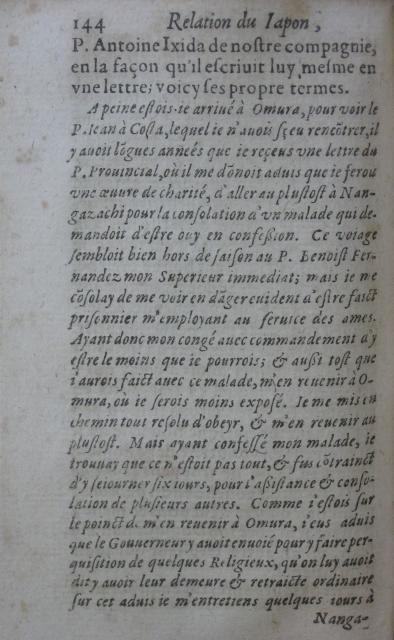 144 Relation du Iapon,
P. Antoine Ixida de nostre compagnie,
en la façon qu'il escriuit luy, mesme en
vne lettre; voicy ses propre termes.
A peine estois-ie arriué à Omura, pour voir le
P. Iean à Costa, lequel ie n'auois sçeu rencõtrer, il
y auoit lõgues anneés que ie reçeus vne lettre du
P. Prouincial, où il me dõnoit aduis que ie ferou
vne œuure de charité, d'aller au plustost à Nan-
gazachi pour la consolation d'vn malade qui de-
mandoit d'estre ouy en confession. Ce voiage
sembloit bien hors de saison au P. Benoist Fer-
nandez mon Superieur immediat; mais ie me
cõsolay de me voir en dãger euident d'estre faict
prisonnier m'employant au seruice des ames.
Ayant donc mon congé auec commandement d'y
estre le moins que ie pourrois; & aussi tost que
i'aurois faict auec ce malade, m'en reuenir à O-
mura, où ie serois moins exposé. Ie me mis en
chemin tout resolu d'obeyr, & m'en reuenir au
plustost. Mais ayant confessé mon malade, ie
trouuay que ce n'estoit pas tout, & fus cõtrainct
d'y seiourner six iours, pour l'assistance & conso-
lation de plusieurs autres. Comme i'estois sur
le poinct de m'en reuenir à Omura, i'eus aduis
que le Gouuerneur y auoit enuoié pour y faire per-
quisition de quelques Religieux, qu'on luy auoit
dit y auoir leur demeure & retraicte ordinaire
sur cet aduis ie m'entretiens quelques iours à
Nanga-